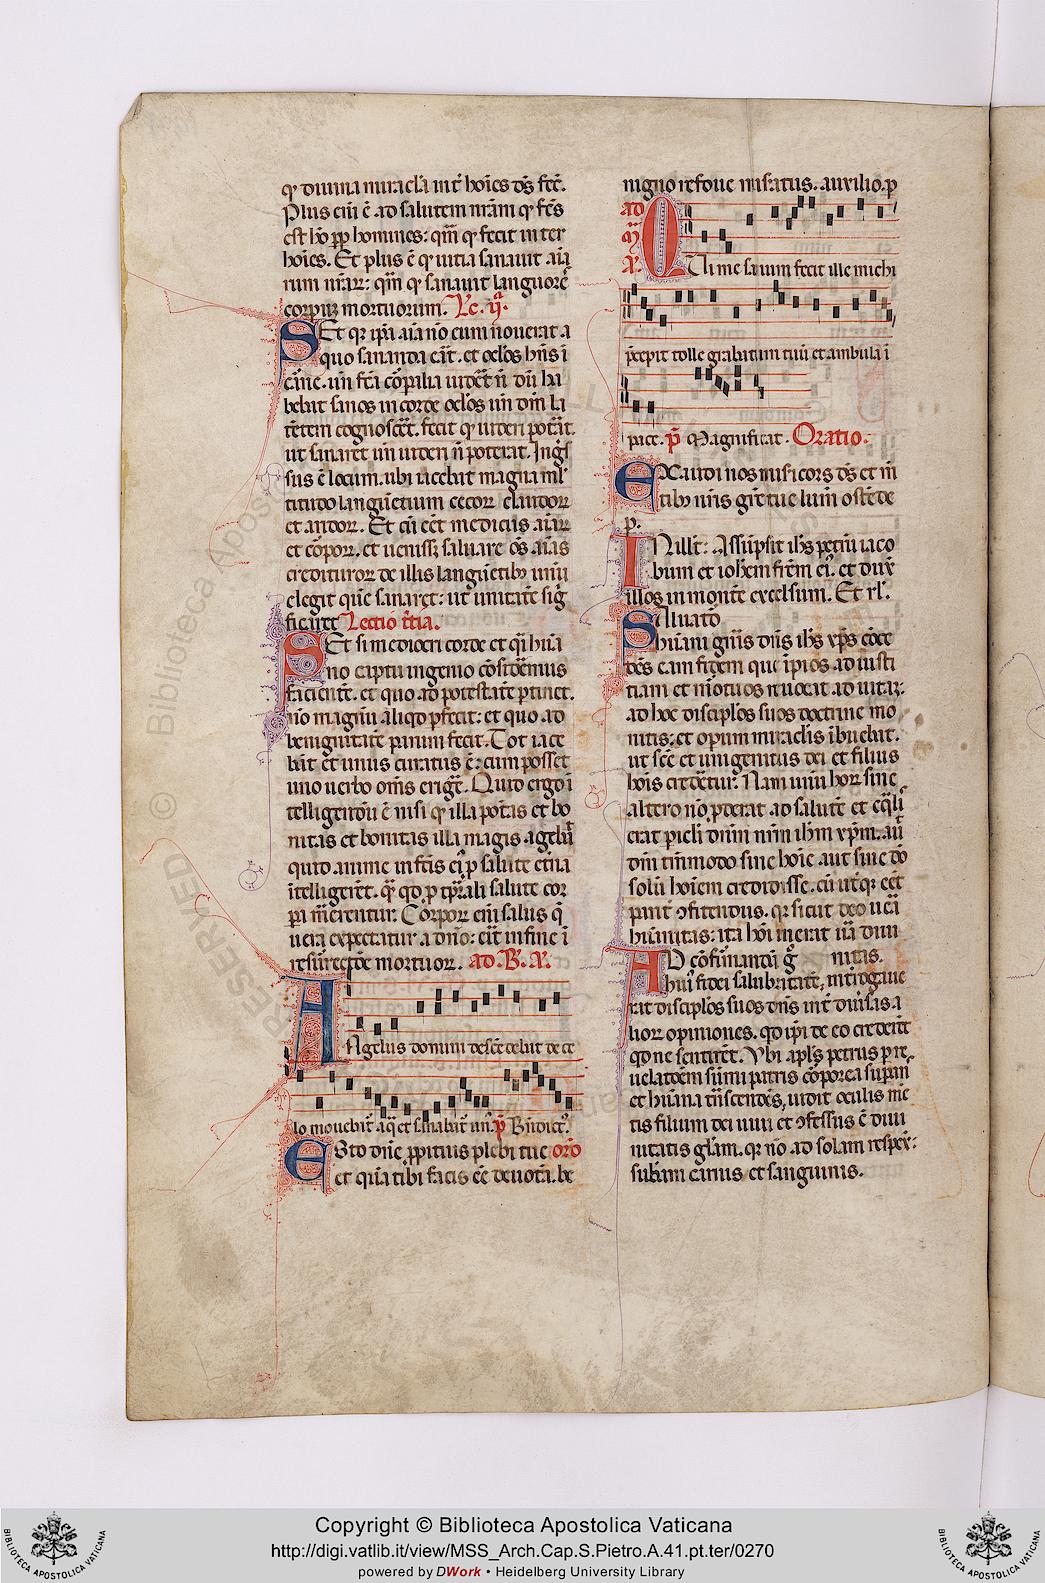 qͥ diuina miracl'a int̄ hoīes dꝰs fec̄.
Plus eni ē ad salutem nr̄am qͥ fc̄s
est hō ꝓp homines: qm̄ qͥ fecit inter
hoīes. Et plus ē qͥ uitia sanauit aīa
rum nr̄aꝝ: qm̄ qͥ sanauit languorē
corpoꝝ mortuorum. Lc. ij.
Set qꝛ ip̄a aīa nō eum nouerat a
quo sananda erat. et oclōs hn̄s ī
carne. un̄ fc̄a corꝑalia uideret n̄ dū ha
bebat sanos in corde oclōs un̄ dm̄ la
tentem cognosceret. fecit qͥ uideri poterat.
ut sanaret un̄ uideri n̄ poterat. Ingͥs
sus ē locum. ubi iacebat magna ml'
titudo languētium cecoꝝ claudoꝝ
et aridoꝝ. Et cū eēt medicus aīaꝝ
et corꝑoꝝ. et uenisset saluare oēs aīas
creditiroꝝ de illis languētibꝰ unū
elegit quē sanaret: ut unitatē sigͥ
ficaret Lectio t̄tia.
Set si mediocri corde et qͣi huma
no captu ingenio consideremus
facientē. et quo ad potestatē ꝑtinet.
nō magnū aliqd ꝑfecit: et quo ad
benignitatē parum fecit. Tot iace
bāt et unus curatus ē: cum posset
uno uerbo om̄s erigere. Quid ergo ī
telligendū ē nisi qͥ illa potestas et bo
nitas et bonitas illa magis agebat
quid anime in fc̄is eiꝰ ꝑ salute et̄na
ītelligerēt. qͣ qd ꝑ tꝑrali salute cor
pa mererentur. Corpoꝝ eni salus qͥ
uera expectatur a dn̄o: erit in fine ī
resurrectōe mortuoꝝ. ad. B. A.
Angelus domini descēdebat de ce
lo mouebat̄ aqͣ et sanabat̄ un̄ꝰ. p̄s Bn̄dictꝰ.
Esto dn̄e ꝓpitius plebi tue or̄o
et quā tibi facis eē deuotā. be
nigno refoue misatus. auxilio. ꝑ
ad M. A.
Qui me sanum fecit ille michi
p̄cepit tolle grabatum tuū et ambula ī
pace. p̄s Magnificat. Oratio.
Exaudi nos misericors dꝰs et m̄
tibꝰ nr̄is gr̄e tue lumē ostēde
ꝑ.
In illt̄: Assūpsit ih̄s petrū iaco
bum et ioh̄em fr̄em eiꝰ. et dux̄
illos in monte excelsum. Et rl'.
Saluato
humani gn̄is dn̄s ih̄s xp̄s cōce
dēs eam fidem que īpios ad iusti
tiam et mortuos reuocat ad uitā:
ad hoc discipl'os suos doctrine mo
nitis. et operum miracl'is ībuebat.
ut sc̄ē et unigenitus dei et filius
hoīs crederetur. Nam unū hoꝝ sine
altero nō ꝓderat ad salutē et eqͣli
erat ꝑicli dn̄m nr̄m ih̄m xp̄m. aut̄
dm̄ tm̄modo sine hoīe. aut sine dō
solū hoīem credidisse. cū utͥqꝫ eēt
parit̄ ɔfitendus. qꝛ sicut deo uera
humanitas: ita hōi inerat uera diui
Ad confirmandā gͦ nitas.
huiꝰ fidei salubritatē, interrogaue
rat discipl'os suos dn̄s int̄ diūsas a
lioꝝ opiniones. qd ip̄i de eo crederēt
qd ne sentirēt. Ubi apl's petrus ꝑ re
uelatōem sum̄i patris corꝑorea suꝑans
et humana tn̄scendēs, uidit oculis mē
tis filium dei uiui et ɔfessus ē diui
nitatis gl'am. qꝛ nō ad solam respex̄:
sub̄am carnis et sanguinis.
RESERVED © Biblioteca Apostolica
Copyright © Biblioteca Apostolica Vaticana
http://digi.vatlib.it/view/MSS_Arch.Cap.S.Pietro.A.41.pt.ter/0270
powered by DWork • Heidelberg University Library
BIBLIOTECA APOSTOLICA VATICANA
BIBLIOTECA APOSTOLICA VATICANA